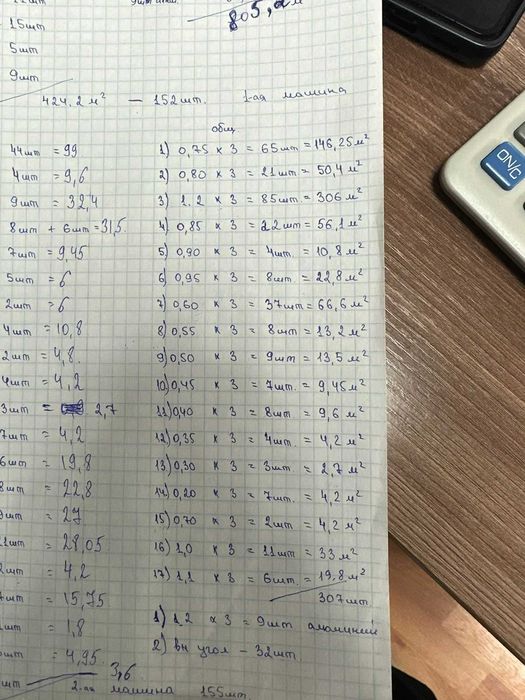 15шт
5шт
9шт
805,2 м
424,2 м² — 152шт. 1-ая машина
общ
44шт = 99
4шт = 9,6
9шт = 32,4
8шт + 6шт = 31,5
7шт = 9,45
5шт = 6
2шт = 6
4шт = 10,8
2шт = 4,8
4шт = 4,2
3шт = 2,7
7шт = 4,2
6шт = 19,8
8шт = 22,8
9шт = 27
11шт = 28,05
2шт = 4,2
7шт = 15,75
1шт = 1,8
шт = 4,95
3,6
2-ая машина 155шт
1) 0,75 x 3 = 65шт = 146,25 м²
2) 0,80 x 3 = 21шт = 50,4 м²
3) 1.2 x 3 = 85шт = 306 м²
4) 0,85 x 3 = 22шт = 56,1 м²
5) 0,90 x 3 = 4шт. = 10,8 м²
6) 0,95 x 3 = 8шт = 22,8 м²
7) 0,60 x 3 = 37шт = 66,6 м²
8) 0,55 x 3 = 8шт = 13,2 м²
9) 0,50 x 3 = 9шт = 13,5 м²
10) 0,45 x 3 = 7шт. = 9,45 м²
11) 0,40 x 3 = 8шт = 9,6 м²
12) 0,35 x 3 = 4шт. = 4,2 м²
13) 0,30 x 3 = 3шт = 2,7 м²
14) 0,20 x 3 = 7шт. = 4,2 м²
15) 0,70 x 3 = 2шт = 4,2 м²
16) 1,0 x 3 = 11шт = 33 м²
17) 1,1 x 3 = 6шт. = 19,8 м²
307шт.
1) 1,2 x 3 = 9шт алюминий
2) вн угол - 32шт
ON/C